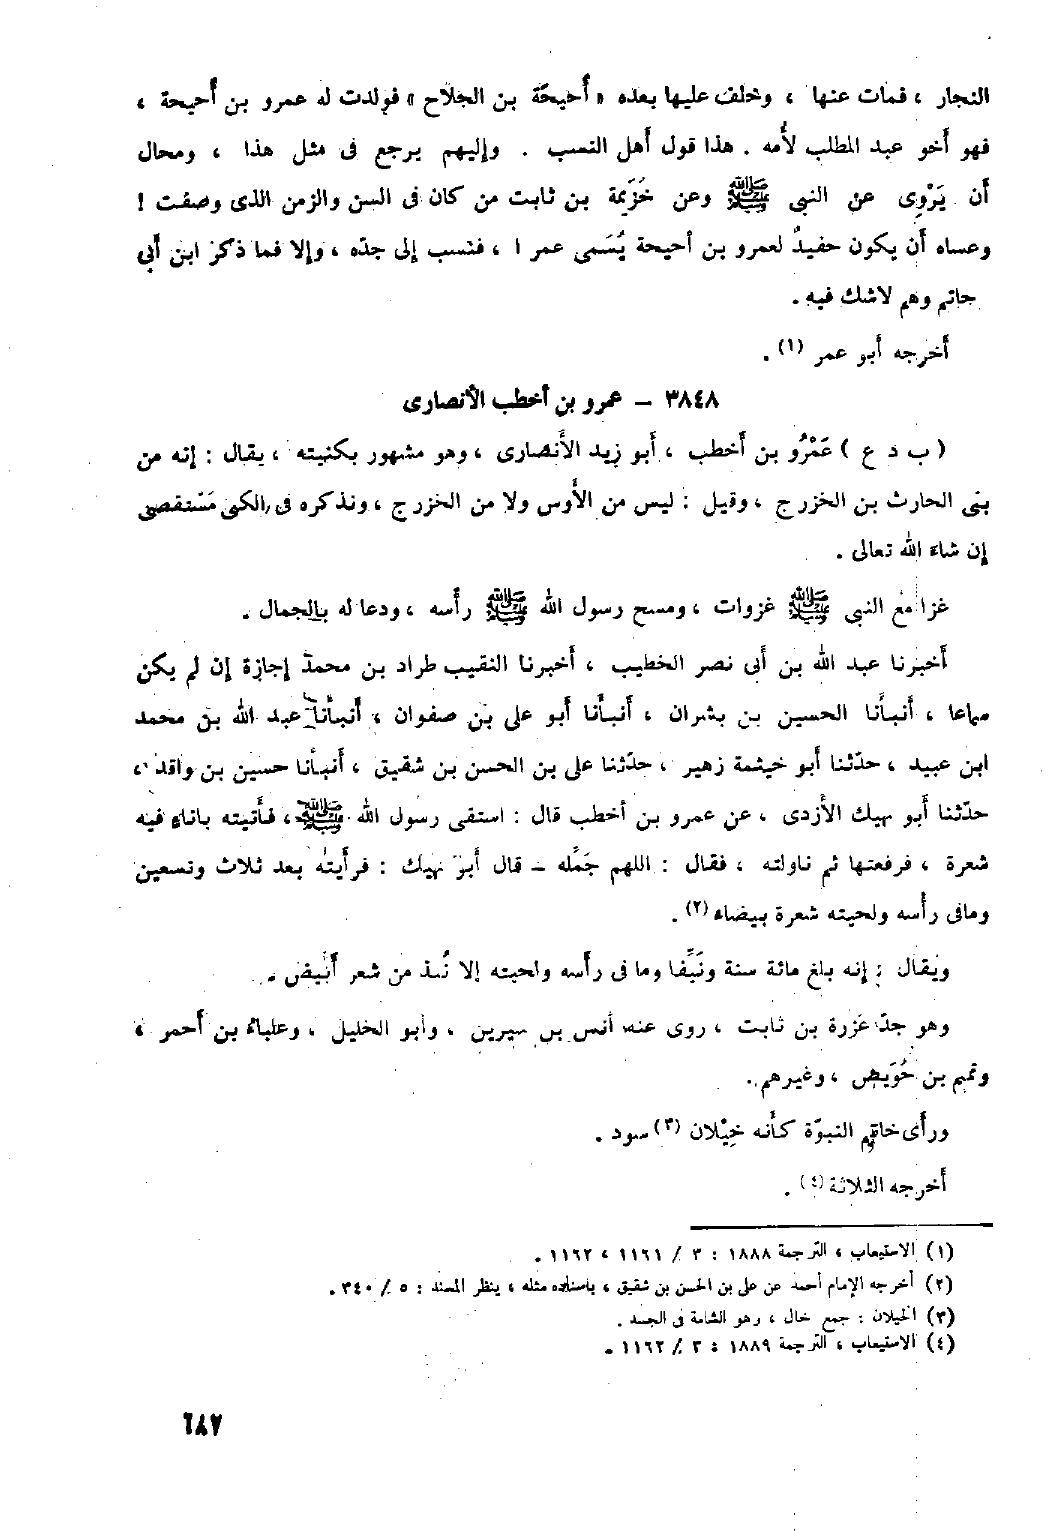 النجار ، فمات عنها ، وخلف عليها بعده « أُحيحَة بن الجلاح » فولدت له عمرو بن أُحيحة ،
فهو أخو عبد المطلب لأُمه . هذا قول أهل النسب . وإليهم يرجع فى مثل هذا ، ومحال
أن يَرْوِى عن النبى ﷺ وعن خُزَيمة بن ثابت من كان فى السن والزمن الذى وصفت !
وعساه أن يكون حفيدٌ لعمرو بن أحيحة يُسَمى عمرا ، فنسب إلى جدّه ، وإلا فما ذكر ابن أبى
حاتم وهم لاشك فيه .
أخرجه أبو عمر (١) .
٣٨٤٨ – عمرو بن أخطب الأنصارى
( ب د ع ) عَمْرُو بن أخطب ، أبو زيد الأنصارى ، وهو مشهور بكنيته ، يقال : إنه من
بنى الحارث بن الخزرج ، وقيل : ليس من الأوس ولا من الخزرج ، ونذكره فى الكنى مُسْتقصىً
إن شاء الله تعالى .
غزا مع النبى ﷺ غزوات ، ومسح رسول الله ﷺ رأسه ، ودعا له بالجمال .
أخبرنا عبد الله بن أبى نصر الخطيب ، أخبرنا النقيب طراد بن محمد إجازة إن لم يكن
سماعا ، أنبأنا الحسين بن بشران ، أنبأنا أبو على بن صفوان ، أنبأنا عبد الله بن محمد
ابن عبيد ، حدّثنا أبو خيثمة زهير ، حدّثنا على بن الحسن بن شقيق ، أنبأنا حسين بن واقد ،
حدّثنا أبو نهيك الأزدى ، عن عمرو بن أخطب قال : استقى رسول الله ﷺ ، فأتيته باناء فيه
شعرة ، فرفعتها ثم ناولته ، فقال : اللهم جَمِّله – قال أبو نهيك : فرأيته بعد ثلاث وتسعين
ومافى رأسه ولحيته شعرة بيضاء (٢) .
ويقال : إنه بلغ مائة سنة ونَيِّفا وما فى رأسه ولحيته إلا نُبذ من شعر أبيض .
وهو جدّ عَزرة بن ثابت ، روى عنه أنس بن سيرين ، وأبو الخليل ، وعلباءُ بن أحمر ،
وتميم بن حُوَيص ، وغيرهم .
ورأى خاتم النبوّة كأنه خِيْلان (٣) سود .
أخرجه الثلاثة (٤) .
(١) الاستيعاب ، الترجمة ١٨٨٨ : ٣ / ١١٦١ ، ١١٦٢ .
(٢) أخرجه الإمام أحمد عن على بن الحسن بن شقيق ، باسناده مثله ، ينظر المسند : ٥ / ٣٤٠ .
(٣) الخيلان : جمع خال ، وهو الشامة فى الجسد .
(٤) الاستيعاب ، الترجمة ١٨٨٩ : ٣ / ١١٦٢ .
٦٨٧